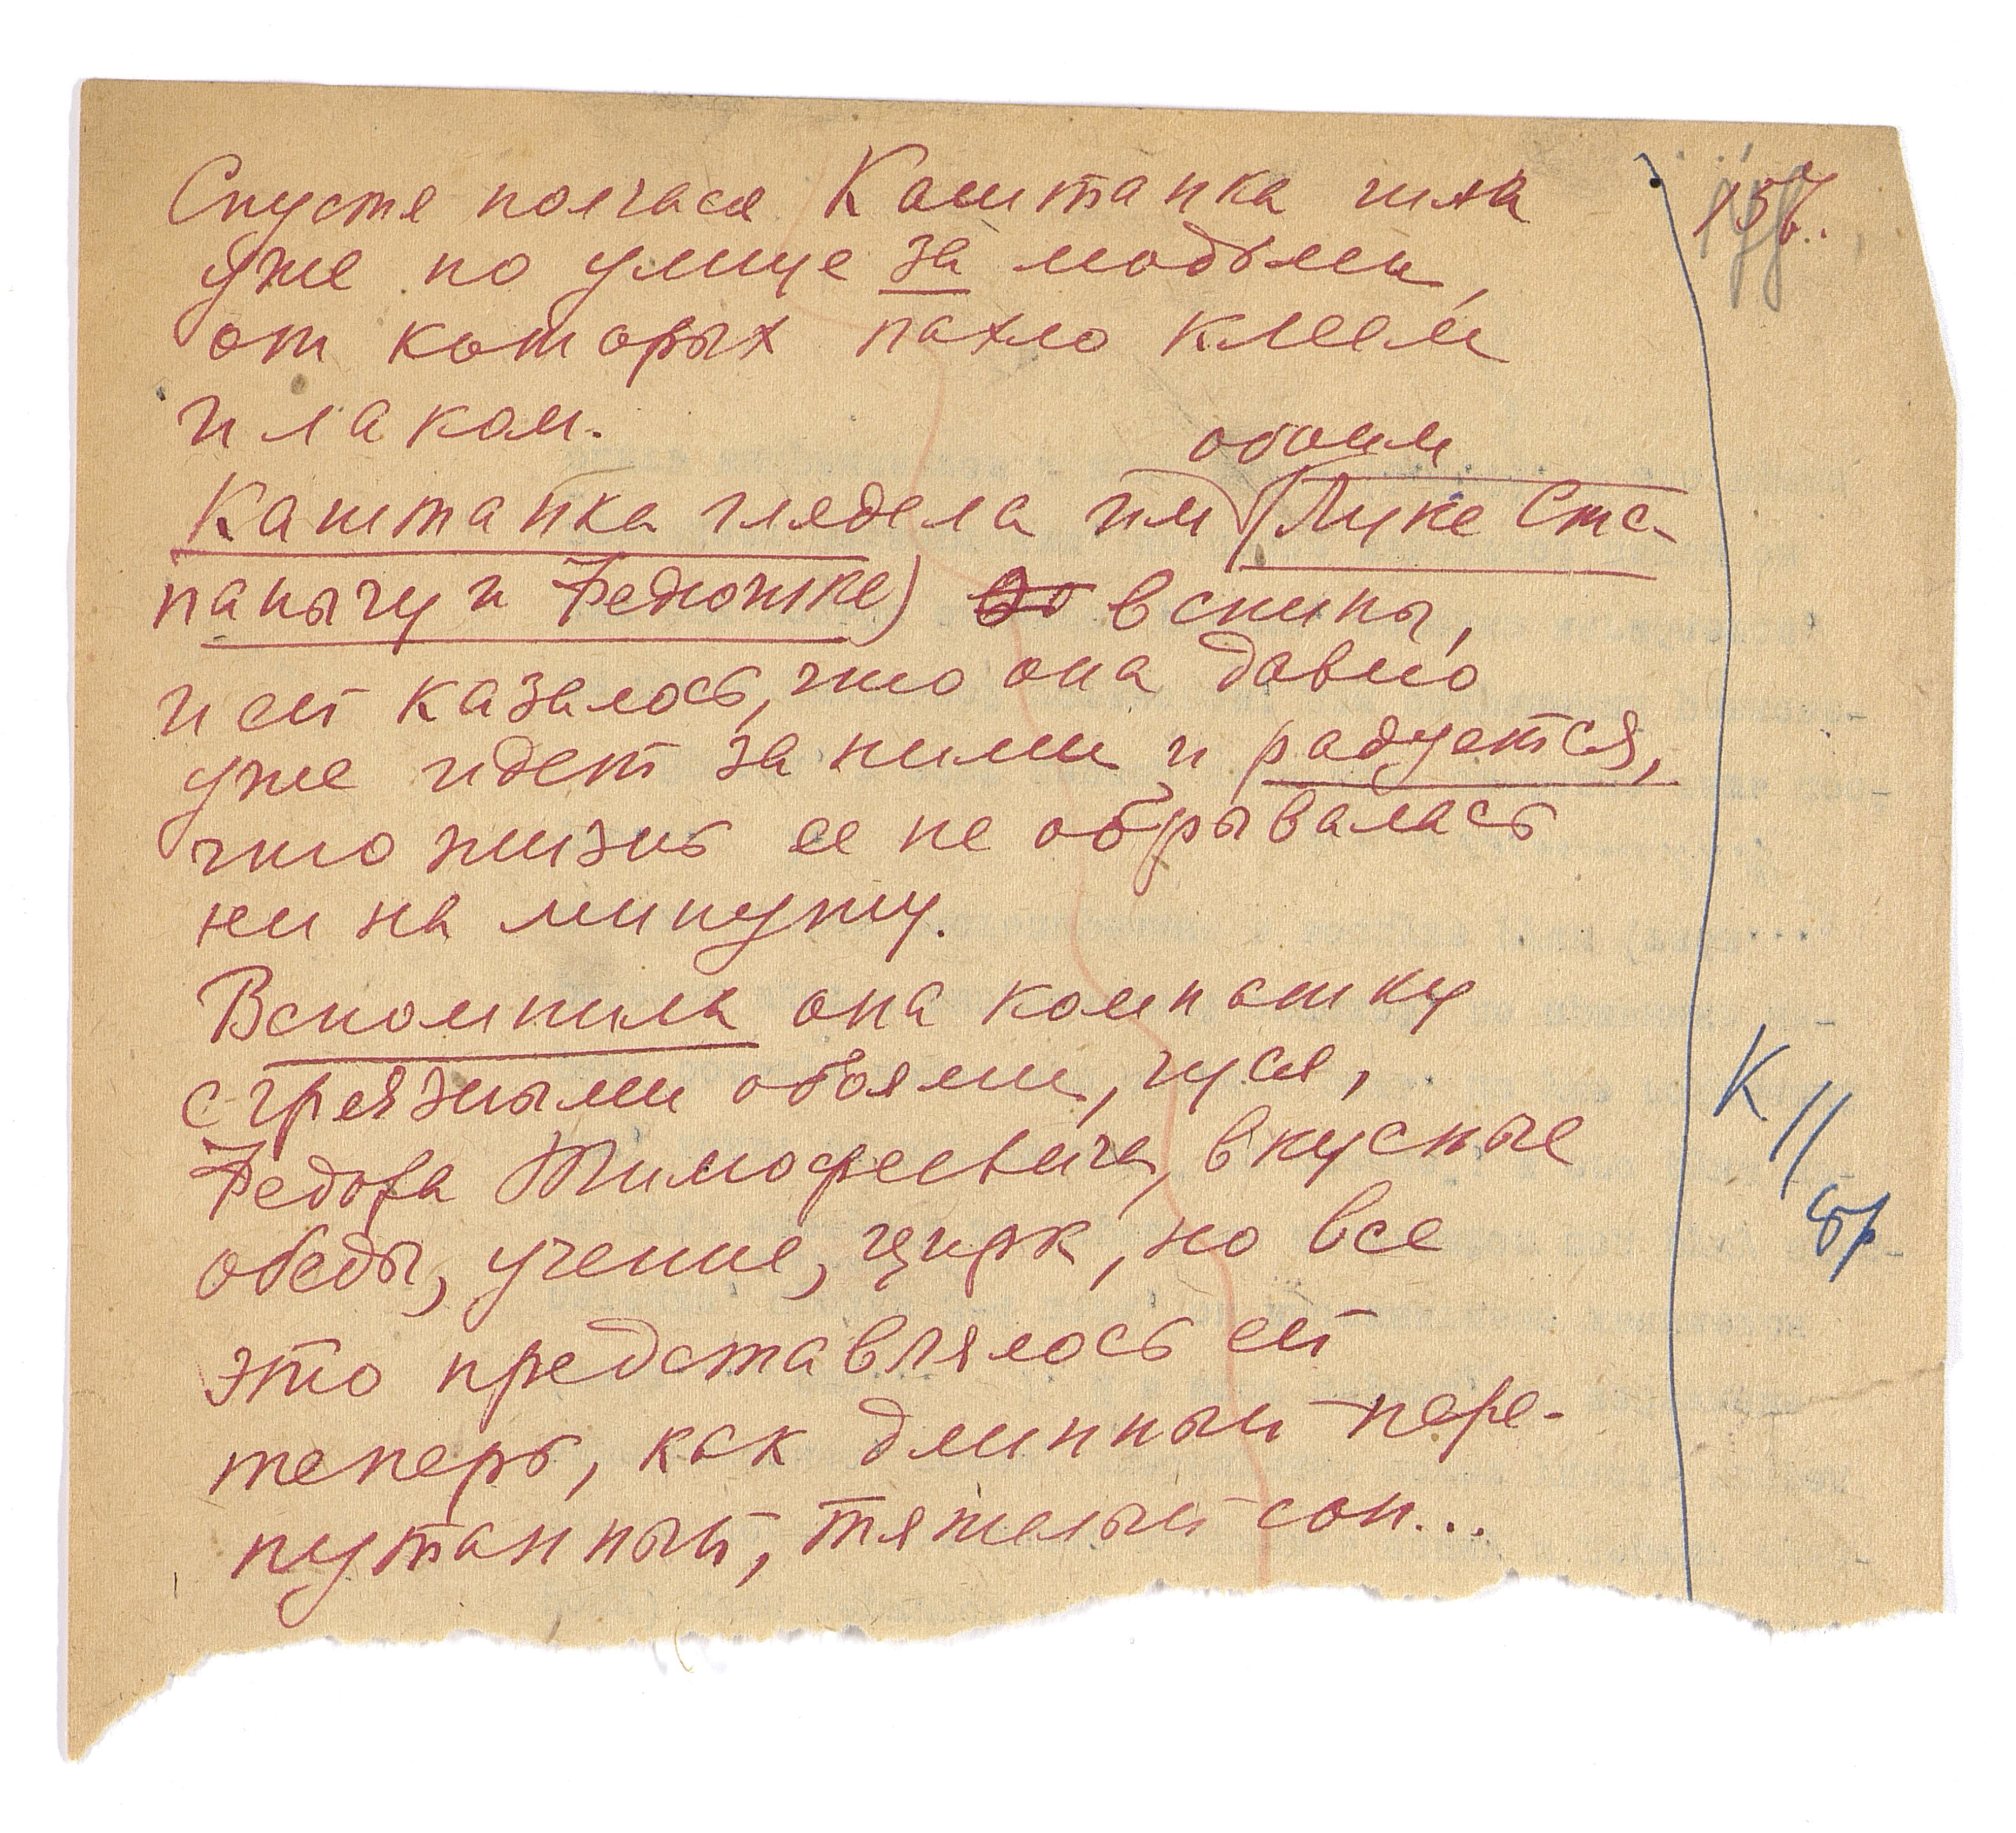 Спустя полчаса Каштанка шла
уже по улице за людьми,
от которых пахло клеем
и лаком.
обоим
Каштанка глядела им (Луке Сте-
панычу и Федюшке) в спины,
и ей казалось, что она давно
уже идет за ними и радуется,
что жизнь ее не обрывалась
ни на минуту.
Вспомнила она комнатку
с грязными обоями, гуся,
Федора Тимофеевича, вкусные
обеды, учение, цирк, но все
это представлялось ей
теперь, как длинный пере-
путанный, тяжелый сон...
К //